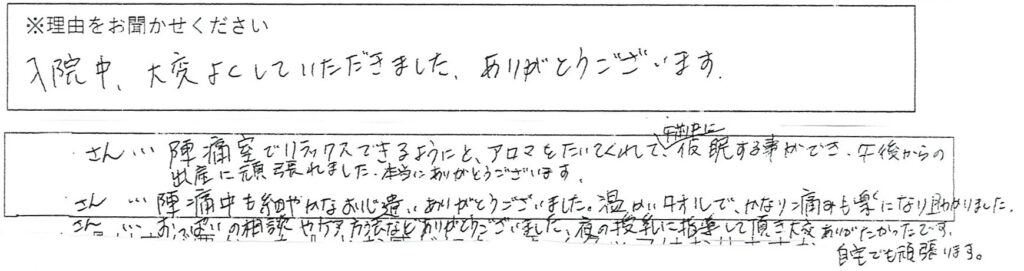 ※理由をお聞かせください
入院中、大変よくしていただきました。ありがとうございます。
午前中に
さん…陣痛室でリラックスできるようにと、アロマをたいてくれて、仮眠する事ができ、午後からの
出産に頑張れました。本当にありがとうございます。
さん…陣痛中も細やかなお心遣いありがとうございました。温かいタオルで、かなり痛みも楽になり助かりました。
さん…おっぱいの相談やケア方法などありがとうございました。夜の授乳に指導して頂き大変ありがたかったです。
自宅でも頑張ります。